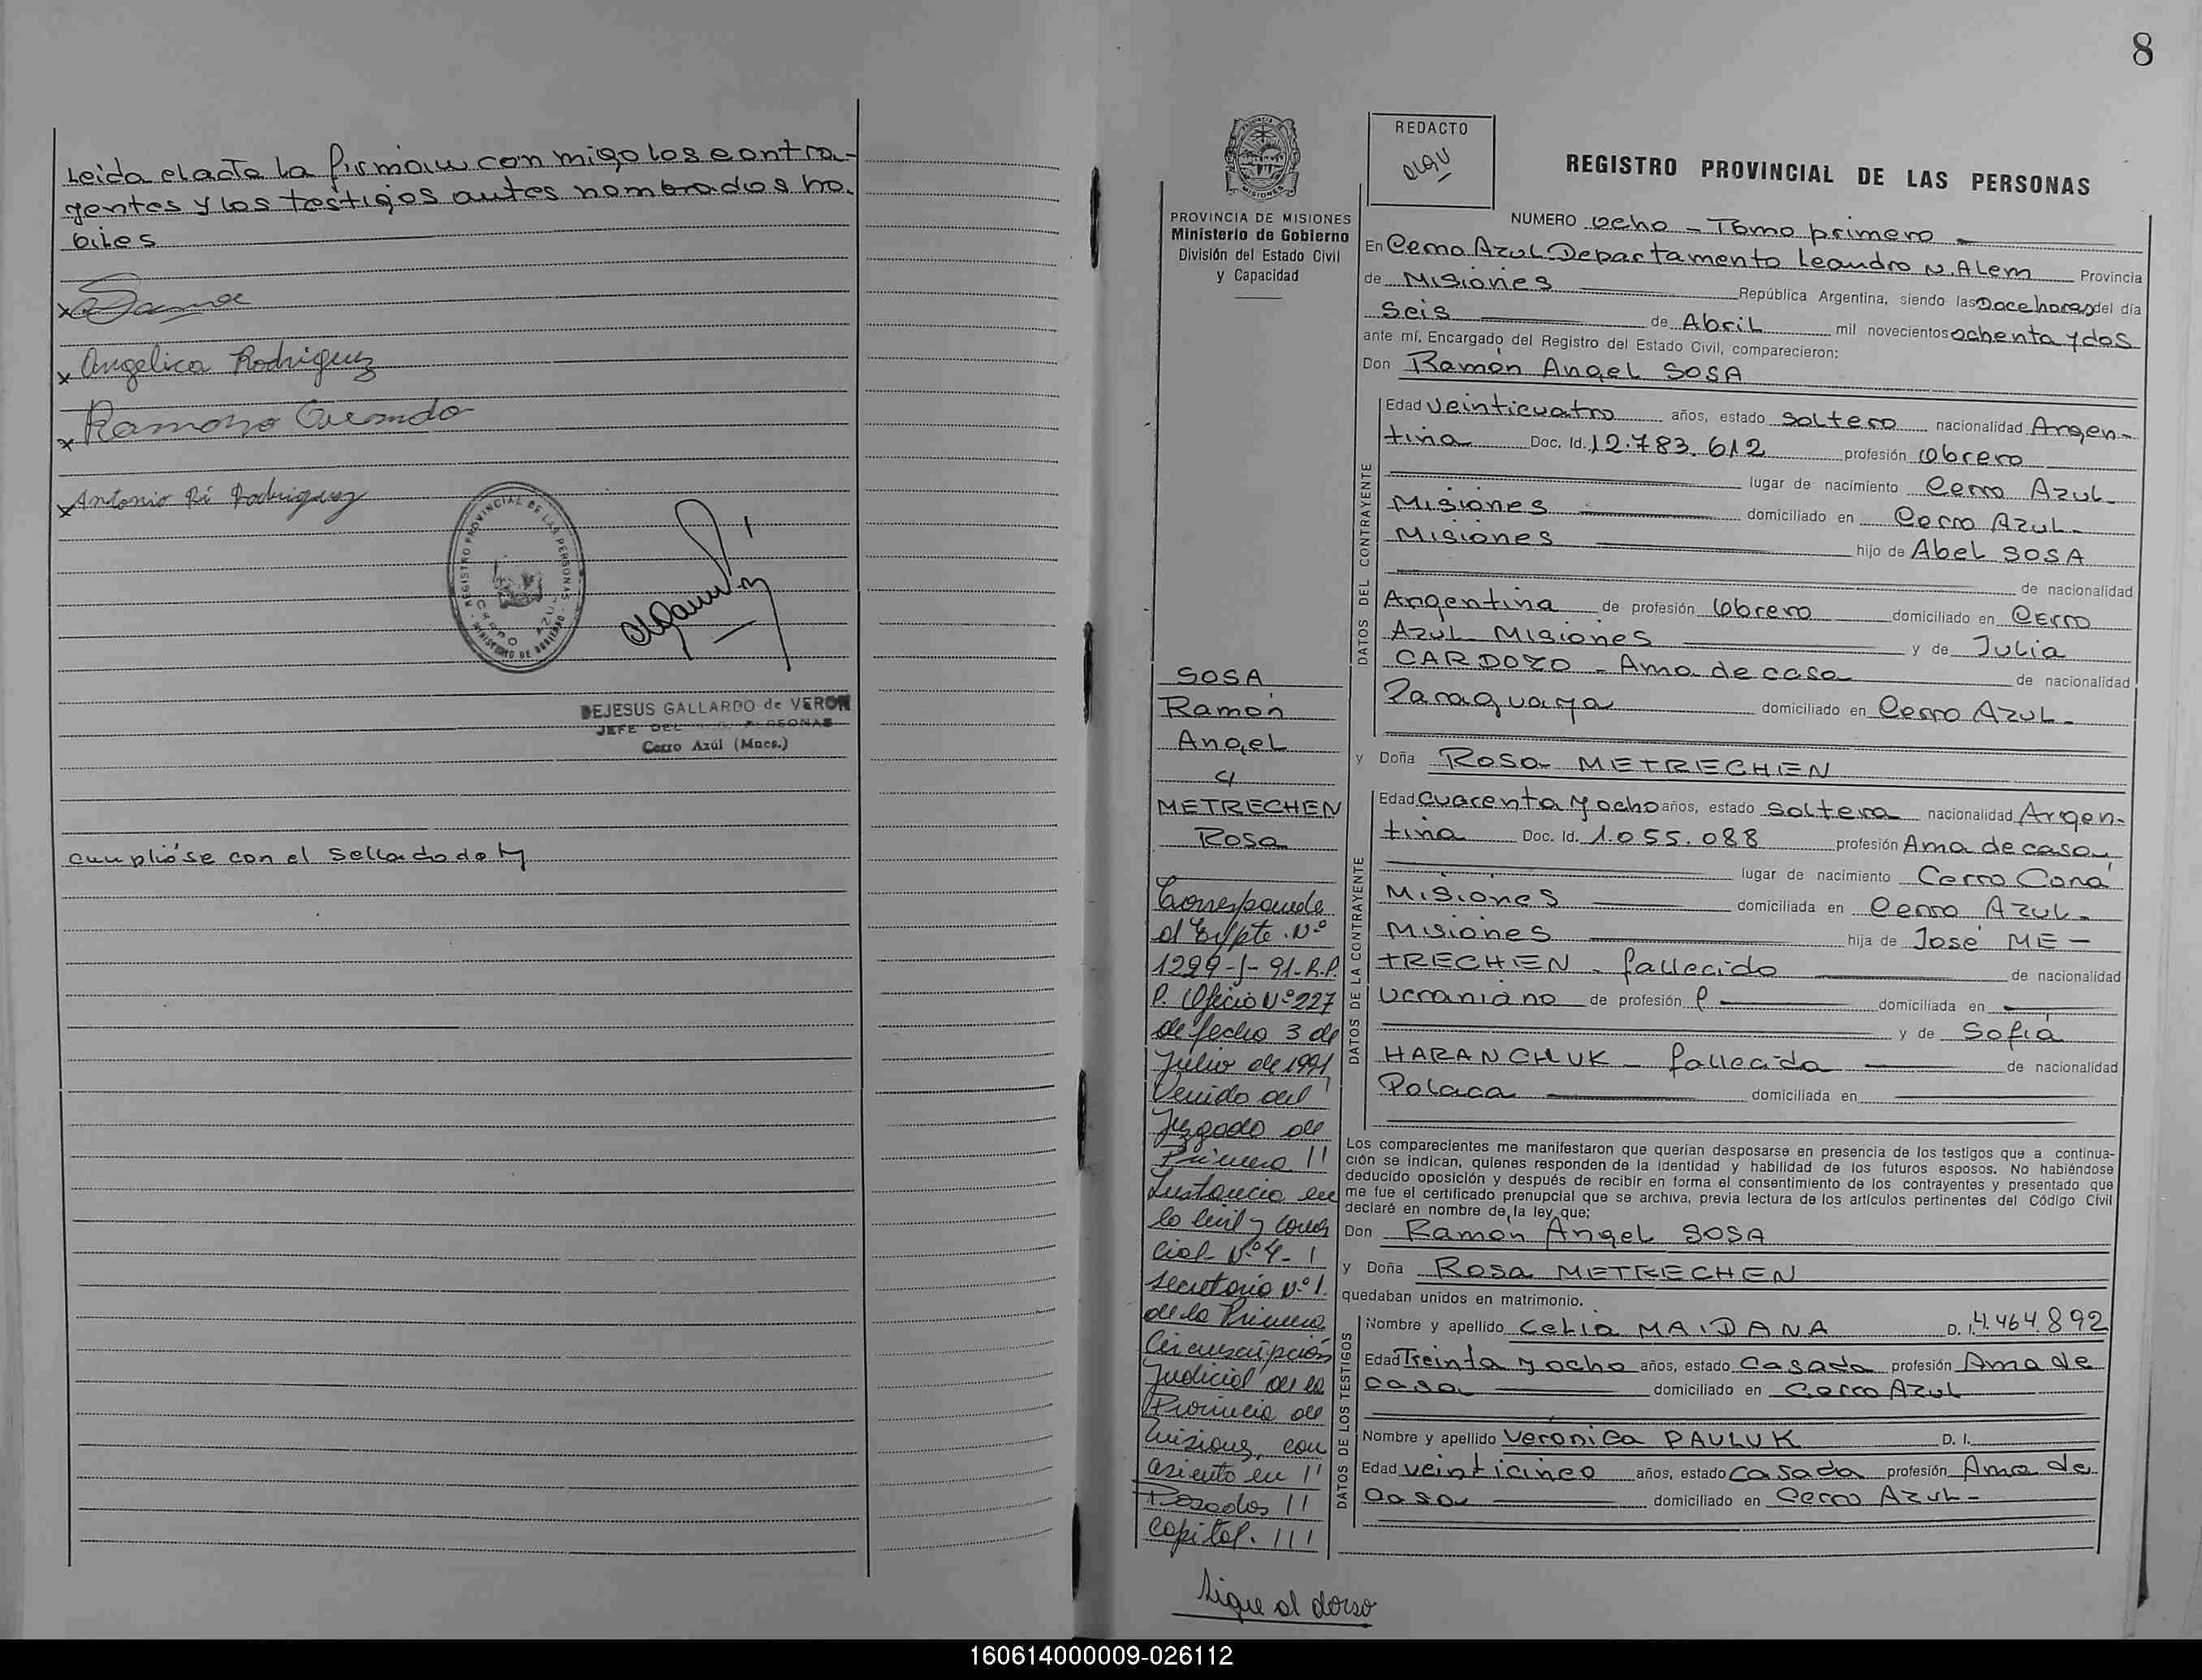 Leida el acta la firman con migo los contra-
yentes y los testigos antes nombrados ha.
biles
x
x Angelica Rodriguez
x Ramono
x Antonio Rodriguez
REGISTRO PROVINCIAL DE LAS PERSONAS
CERRO AZUL
MINISTERIO DE GOBIERNO
DEJESUS GALLARDO de VERON
JEFE DEL PERSONAS
Cerro Azúl (Mnes.)
cumplióse con el sellado de ley
8
PROVINCIA DE MISIONES
Ministerio de Gobierno
División del Estado Civil
y Capacidad
REDACTO
REGISTRO PROVINCIAL DE LAS PERSONAS
NUMERO ocho - Tomo primero
En Cerro Azul Departamento Leandro N. Alem Provincia
de Misiones República Argentina, siendo las Doce horas del día
Seis de Abril mil novecientos ochenta y dos
ante mí, Encargado del Registro del Estado Civil, comparecieron:
Don Ramón Angel SOSA
DATOS DEL CONTRAYENTE
Edad veinticuatro años, estado soltero nacionalidad Argen-
tina Doc. Id. 12.783.612 profesión obrero
lugar de nacimiento Cerro Azul-
Misiones domiciliado en Cerro Azul-
Misiones hijo de Abel SOSA
de nacionalidad
Argentina de profesión obrero domiciliado en Cerro
Azul Misiones y de Julia
CARDOZO - Ama de casa de nacionalidad
Paraguaya domiciliado en Cerro Azul-
y Doña Rosa METRECHEN
DATOS DE LA CONTRAYENTE
Edad cuarenta y ocho años, estado soltera nacionalidad Argen-
tina Doc. Id. 1.055.088 profesión Ama de casa
lugar de nacimiento Cerro Corá
Misiones domiciliada en Cerro Azul-
Misiones hija de José ME-
TRECHEN - fallecido de nacionalidad
ucraniano de profesión domiciliada en
y de Sofia
HARANCHUK - fallecida de nacionalidad
Polaca domiciliada en
Los comparecientes me manifestaron que querían desposarse en presencia de los testigos que a continua-
ción se indican, quienes responden de la identidad y habilidad de los futuros esposos. No habiéndose
deducido oposición y después de recibir en forma el consentimiento de los contrayentes y presentado que
me fue el certificado prenupcial que se archiva, previa lectura de los artículos pertinentes del Código Civil
declaré en nombre de la ley que:
Don Ramón Angel SOSA
y Doña Rosa METRECHEN
quedaban unidos en matrimonio.
DATOS DE LOS TESTIGOS
Nombre y apellido Celia MAIDANA D. I. 4.464.892
Edad Treinta y ocho años, estado Casada profesión Ama de
casa domiciliado en Cerro Azul
Nombre y apellido Veronica PAULUK D. I.
Edad veinticinco años, estado Casada profesión Ama de
casa domiciliado en Cerro Azul-
SOSA
Ramón
Angel
c/
METRECHEN
Rosa
Corresponde
al Expte. Nº
1299-J-91-R.P.
P. Oficio Nº 227
de fecha 3 de
Julio de 1991
Venido del
Juzgado de
Primera
Instancia en
lo Civil y Comer
cial- Nº 4-
Secretaria Nº 1.
de la Primera
Circunscripción
Judicial de la
Provincia de
Misiones, con
asiento en
Posadas
Capital.
Sigue al dorso
160614000009-026112